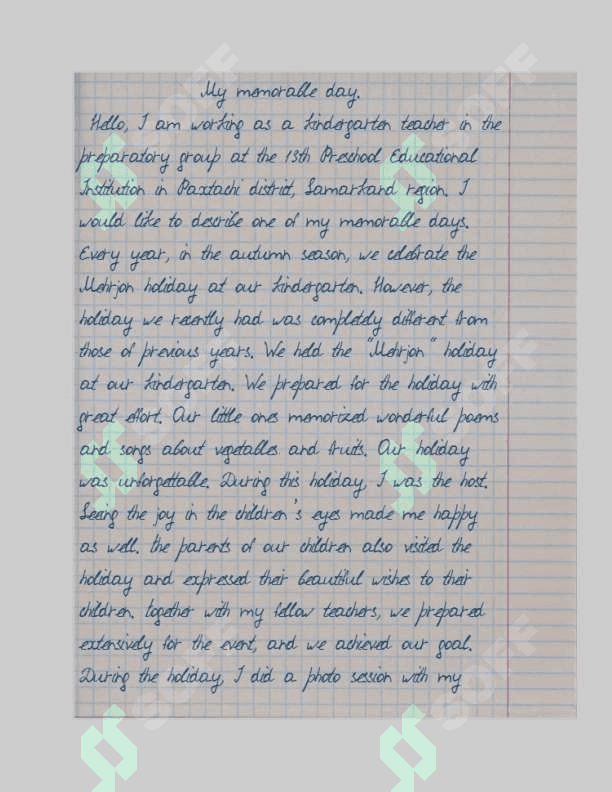 My memorable day.
Hello, I am working as a kindergarten teacher in the
preparatory group at the 13th Preschool Educational
Institution in Paxtachi district, Samarkand region. I
would like to describe one of my memorable days.
Every year, in the autumn season, we celebrate the
Mehrjon holiday at our kindergarten. However, the
holiday we recently had was completely different from
those of previous years. We held the "Mehrjon" holiday
at our kindergarten. We prepared for the holiday with
great effort. Our little ones memorized wonderful poems
and songs about vegetables and fruits. Our holiday
was unforgettable. During this holiday, I was the host.
Seeing the joy in the children's eyes made me happy
as well. the parents of our children also visited the
holiday and expressed their beautiful wishes to their
children. together with my fellow teachers, we prepared
extensively for the event, and we achieved our goal.
During the holiday, I did a photo session with my
SOFF
SOFF
SOFF
SOFF
SOFF
SOFF